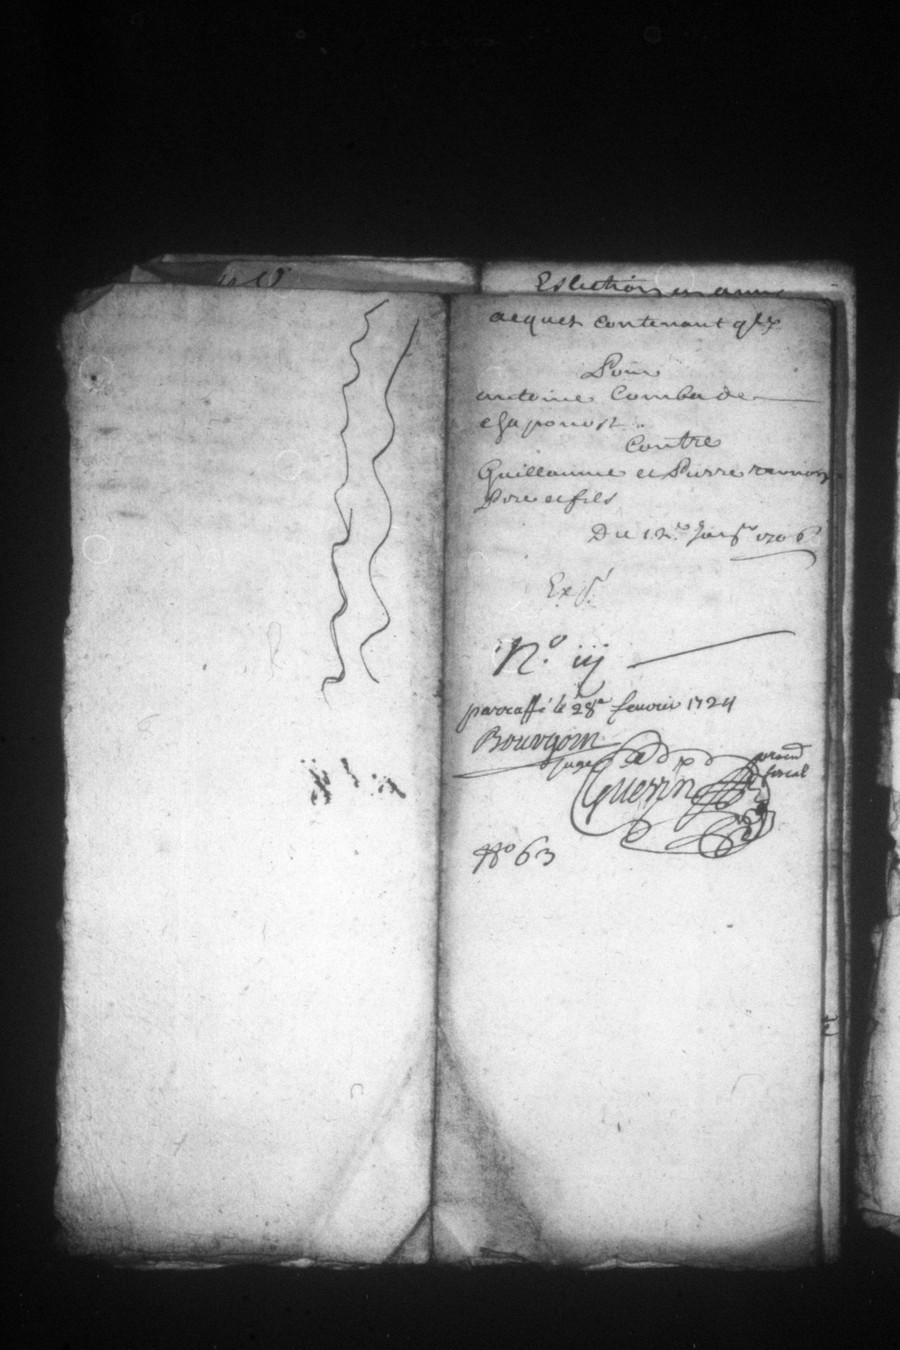 Eslection en
acquet contenant
Pour
antoine Combade
chaponost
Contre
Guillaume et Pierre
Pere et fils
Du 12.e
Exp.
N.o iij
parraffé le 28e feuvrier 1724
Bourgoin
juge
Guerin
fiscal
No 63